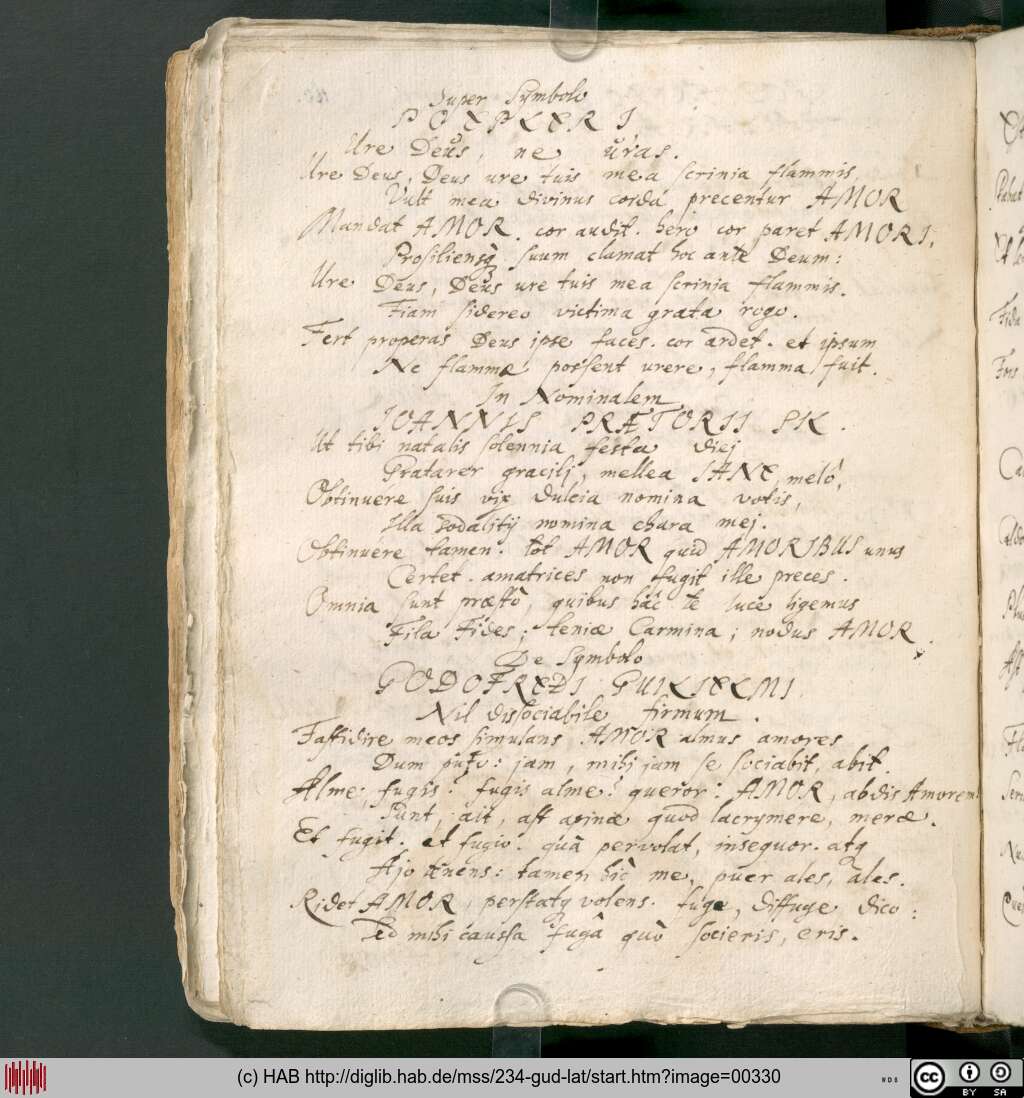 Super Symbolo
POEPLERI
Ure Deus, ne uras.
Ure Deus, Deus ure tuis mea scrinia flammis,
Vult mea divinus corda precentur AMOR
Mandat AMOR. cor audit. hero cor paret AMORI,
Prosiliensq suum clamat hoc ante Deum:
Ure Deus, Deus ure tuis mea scrinia flammis.
Fiam sidereo victima grata rogo.
Fert properas Deus ipse faces. cor ardet. et ipsum
Ne flammæ possent urere, flamma fuit.
In Nominalem
IOANNIS PRÆTORII PK.
Ut tibi natalis solennia festa diej
Gratarer gracilj, mellea IANE, melô,
Obtinuere suis vix dulcia nomina votis,
Illa sodalitij nomina chara mej.
Obtinuére tamen. tot AMOR quid AMORIBUS unus
Certet. amatrices non fugit ille preces.
Omnia sunt præstò, quibus hâc te luce ligemus
Fila Fides; teniæ Carmina; nodus AMOR.
De Symbolo
GODOFREDI GUILIELMI
Nil dissociabile firmum.
Fastidire meos simulans AMOR almus amores
Dum puto: jam, mihj jam se sociabit, abit.
Alme, fugis? fugis alme? queror: AMOR, abdis Amorem?
Sunt, ait, ast apinæ quod lacrymere, meræ.
Et fugit. et fugio. quâ pervolat, insequor. atq
Ajo tenens: tamen hic me, puer ales, ales.
Ridet AMOR, perstatq volens. fuge, diffuge dico:
Sed mihi caussa fugâ quò socieris, eris.
(c) HAB http://diglib.hab.de/mss/234-gud-lat/start.htm?image=00330
cc BY SA